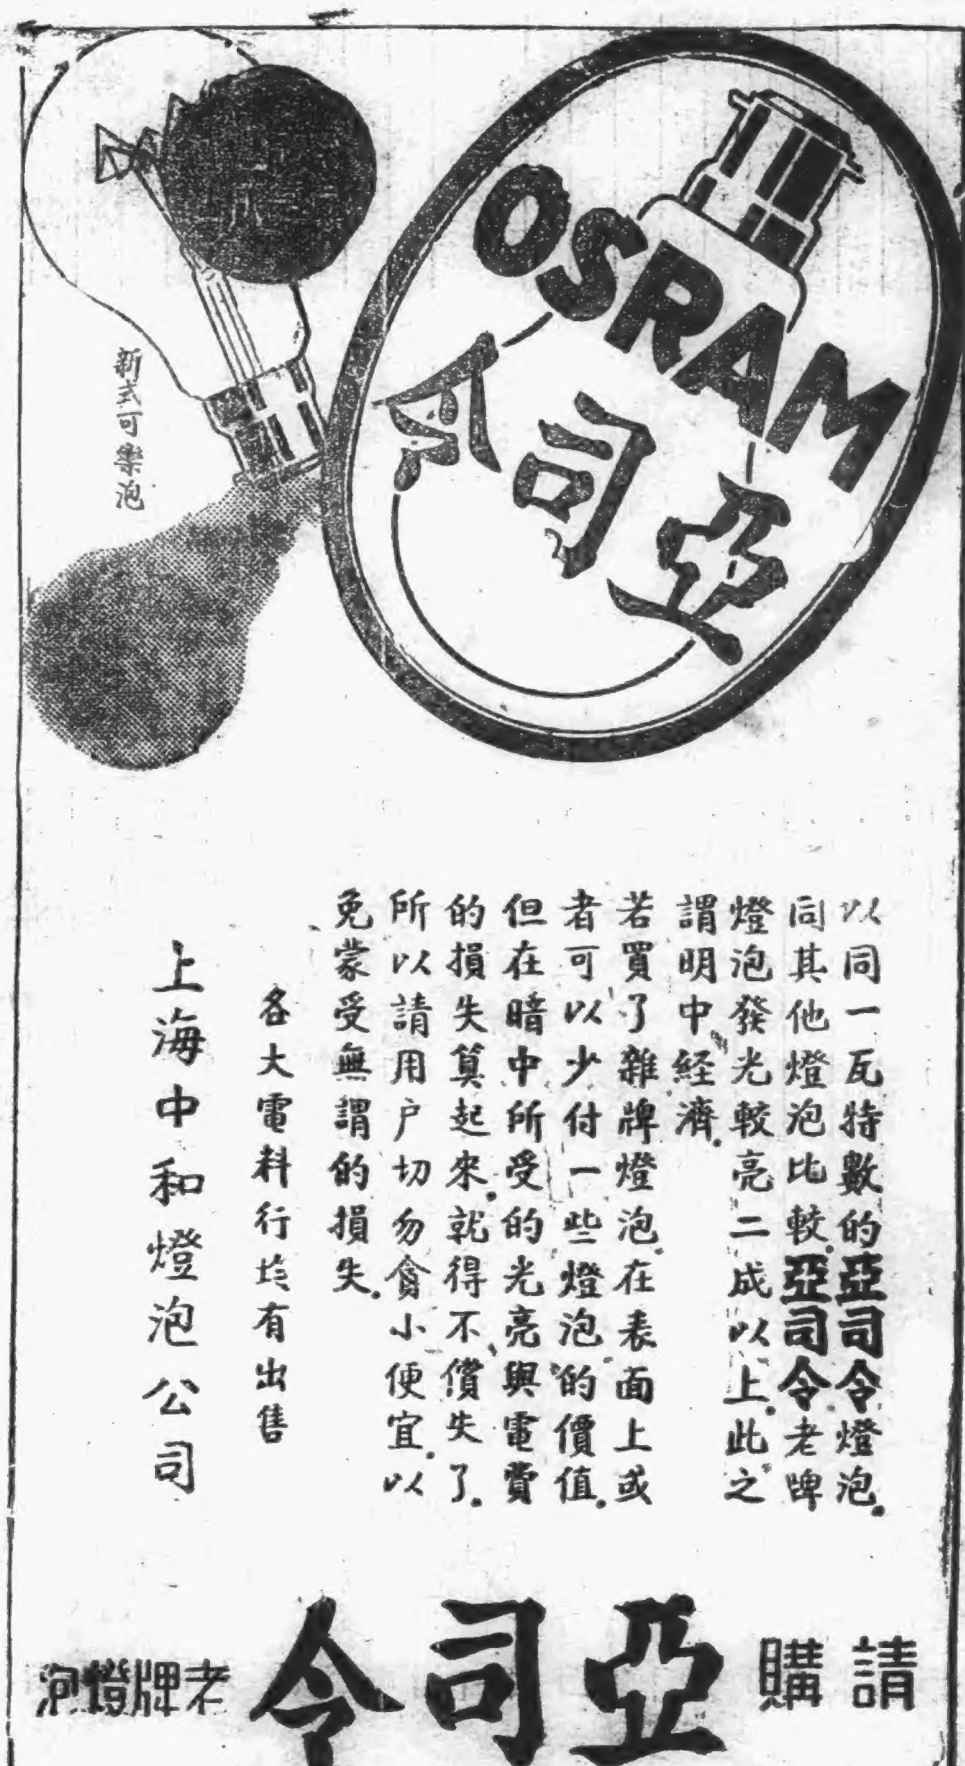 OSRAM
亞司令
新式可樂泡
以同一瓦特數的亞司令燈泡.
同其他燈泡比較.亞司令老牌
燈泡發光較亮二成以上.此之
謂明中經濟.
若買了雜牌燈泡.在表面上或
者可以少付一些燈泡的價值.
但在暗中所受的光亮與電費
的損失算起來.就得不償失了.
所以請用户切勿貪小便宜.以
免蒙受無謂的損失.
各大電料行均有出售
上海中和燈泡公司
請購亞司令老牌燈泡